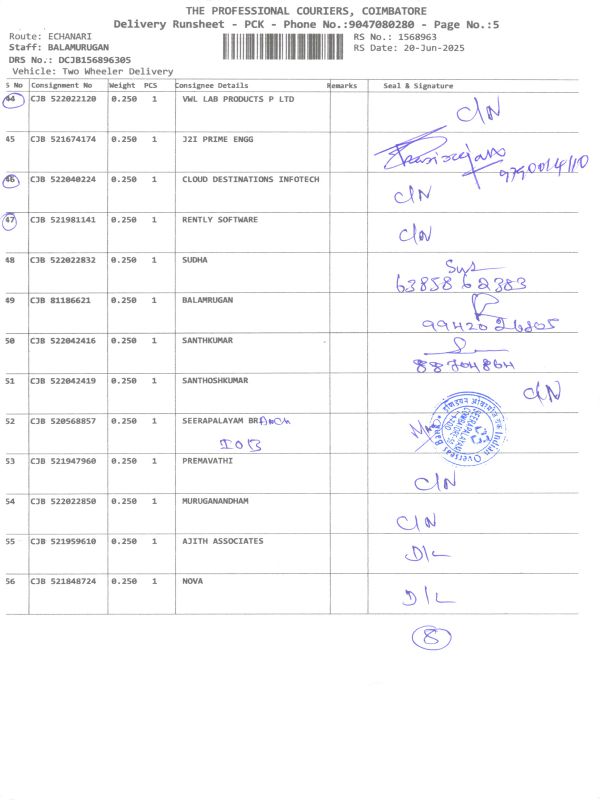 THE PROFESSIONAL COURIERS, COIMBATORE
Delivery Runsheet - PCK - Phone No.:9047080280 - Page No.:5
Route: ECHANARI RS No.: 1568963
Staff: BALAMURUGAN RS Date: 20-Jun-2025
DRS No.: DCJB156896305
Vehicle: Two Wheeler Delivery
S No Consignment No Weight PCS Consignee Details Remarks Seal & Signature
44 CJB 522022120 0.250 1 VWL LAB PRODUCTS P LTD C/N
45 CJB 521674174 0.250 1 J2I PRIME ENGG
9790014110
46 CJB 522040224 0.250 1 CLOUD DESTINATIONS INFOTECH C/N
47 CJB 521981141 0.250 1 RENTLY SOFTWARE C/N
48 CJB 522022832 0.250 1 SUDHA
6385862383
49 CJB 81186621 0.250 1 BALAMRUGAN
9942026205
50 CJB 522042416 0.250 1 SANTHKUMAR
88704864
51 CJB 522042419 0.250 1 SANTHOSHKUMAR C/N
52 CJB 520568857 0.250 1 SEERAPALAYAM BRAnch
IOB
Indian Overseas Bank
53 CJB 521947960 0.250 1 PREMAVATHI C/N
54 CJB 522022850 0.250 1 MURUGANANDHAM C/N
55 CJB 521959610 0.250 1 AJITH ASSOCIATES D/L
56 CJB 521848724 0.250 1 NOVA D/L
8